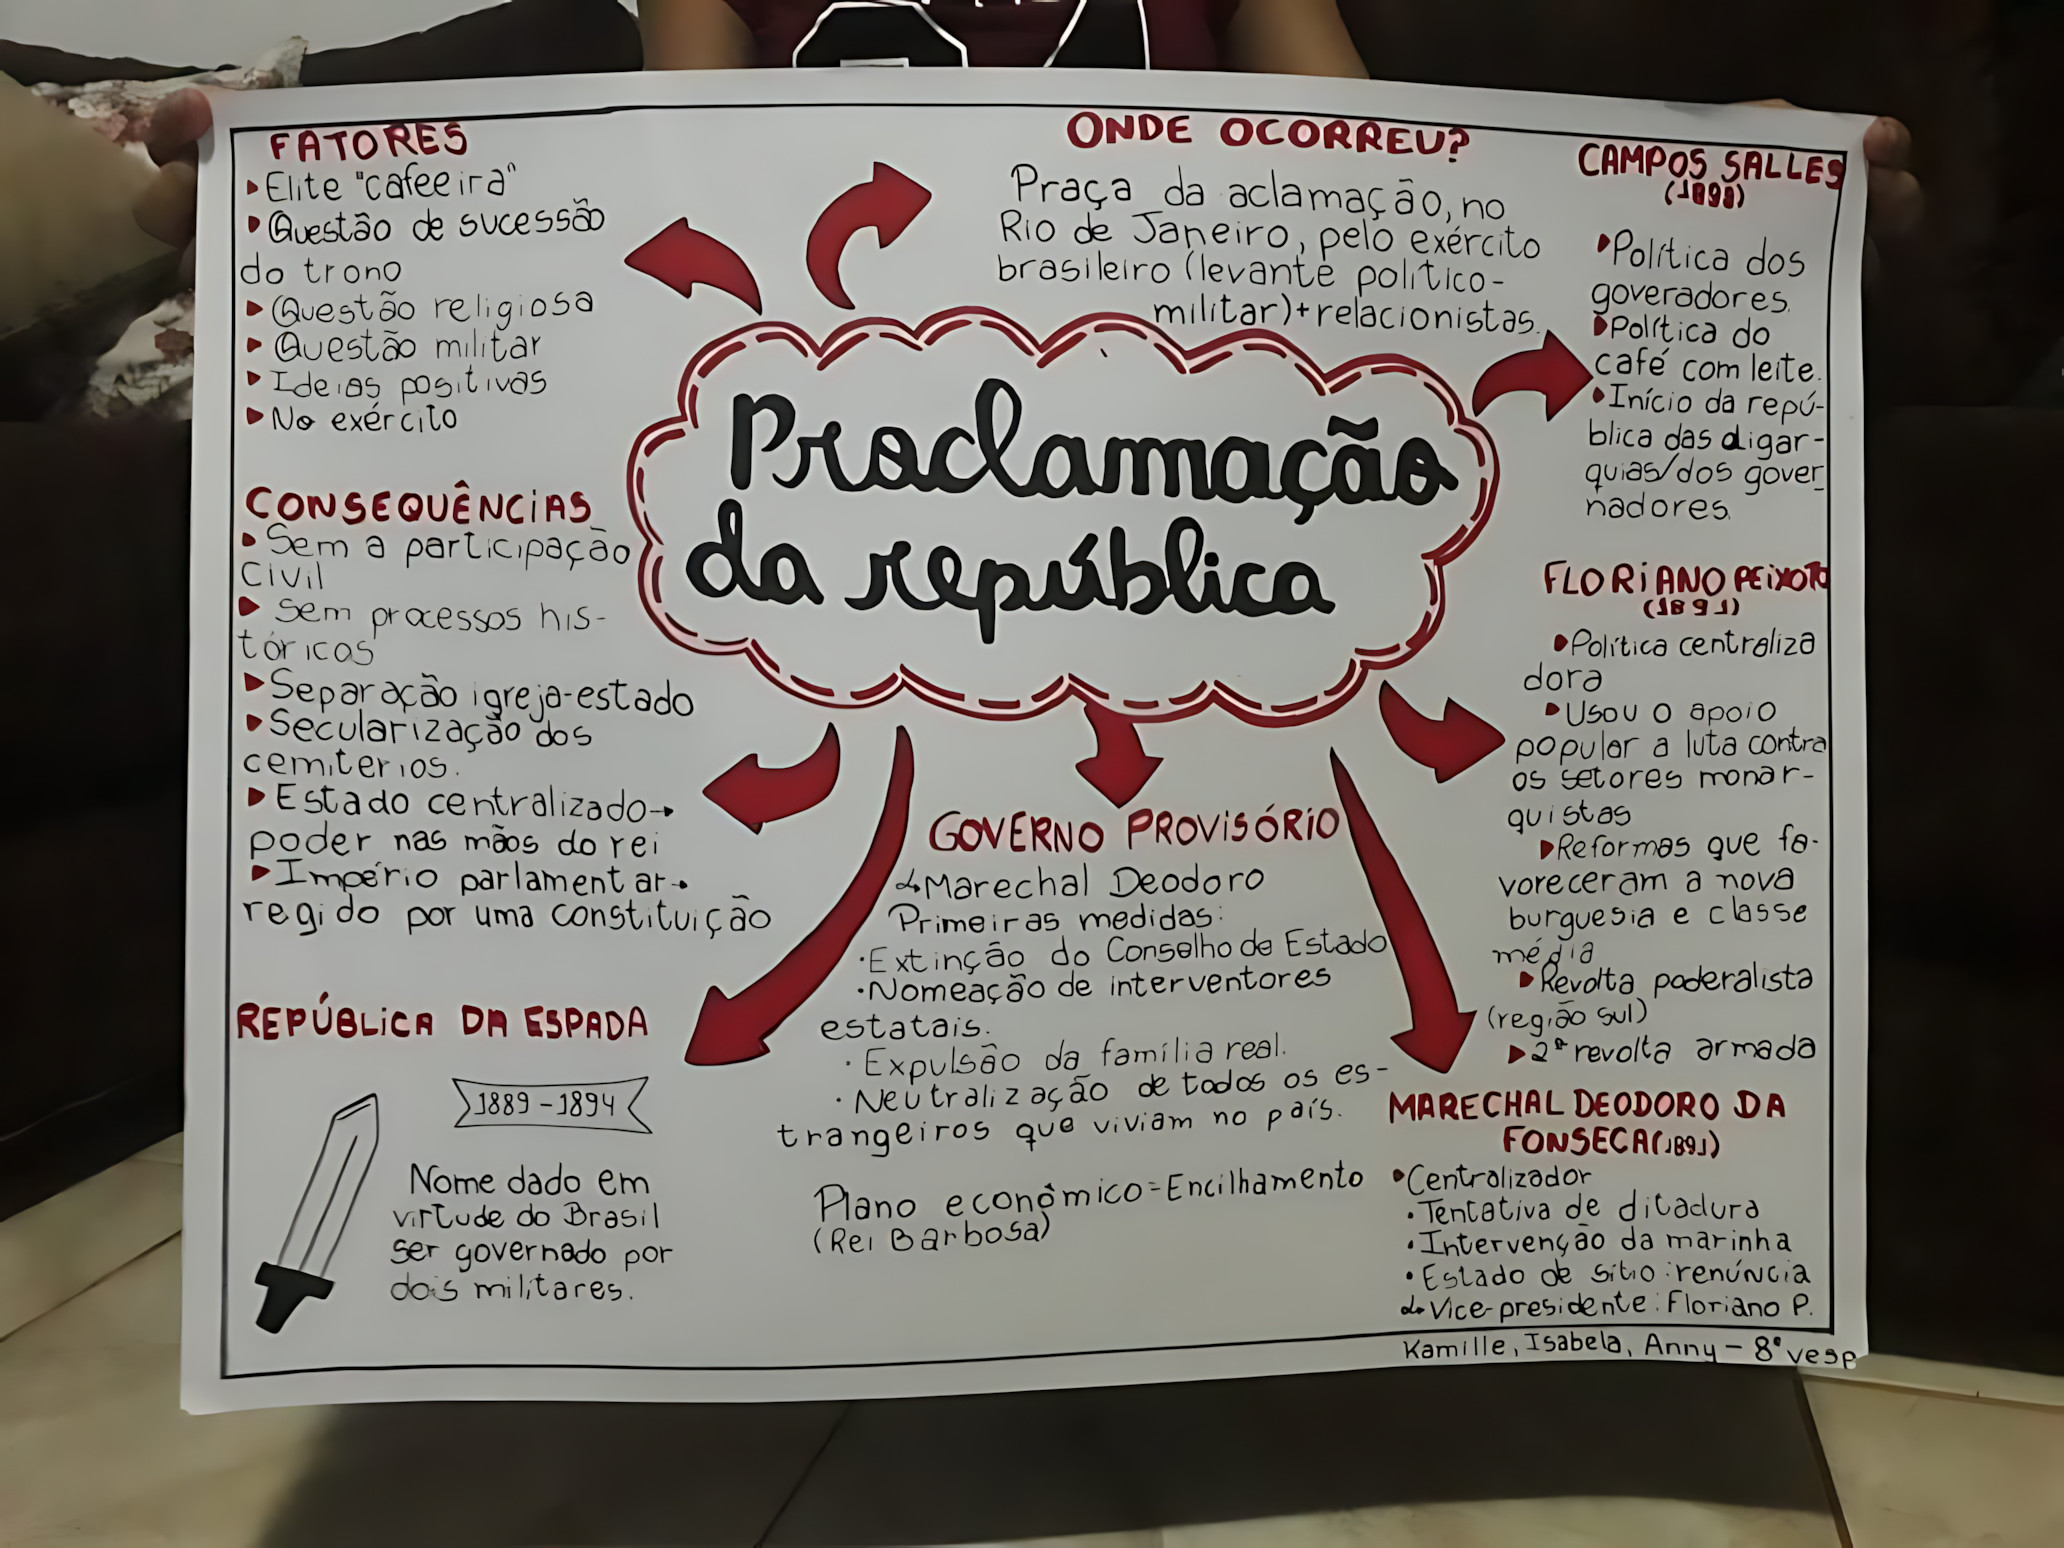 Proclamação
da república
FATORES
Elite "cafeeira"
Questão de sucessão
do trono
Questão religiosa
Questão militar
Ideias positivas
No exército
ONDE OCORREU?
Praça da aclamação, no
Rio de Janeiro, pelo exército
brasileiro (levante político-
militar)+relacionistas.
CAMPOS SALLES
(1898)
Política dos
goveradores.
Política do
café com leite.
Início da repú-
blica das oligar-
quias/dos gover_
nadores.
CONSEQUÊNCIAS
Sem a participação
civil
Sem processos his-
tóricos
Separação igreja-estado
Secularização dos
cemiterios.
Estado centralizado→
poder nas mãos do rei
Império parlamentar→
regido por uma constituição
FLORIANO PEIXOTO
(1891)
Política centraliza
dora
Usou o apoio
popular a luta contra
os setores monar-
quistas
Reformas que fa-
voreceram a nova
burguesia e classe
média
Revolta poderalista
(região sul)
2ª revolta armada
GOVERNO PROVISÓRIO
↳Marechal Deodoro
Primeiras medidas:
·Extinção do Conselho de Estado
·Nomeação de interventores
estatais.
·Expulsão da família real.
·Neutralização de todos os es-
trangeiros que viviam no país.
Plano econômico=Encilhamento
(Rei Barbosa)
REPÚBLICA DA ESPADA
1889-1894
Nome dado em
virtude do Brasil
ser governado por
dois militares.
MARECHAL DEODORO DA
FONSECA(1891)
Centralizador
·Tentativa de ditadura
·Intervenção da marinha
·Estado de sítio:renúncia
↳Vice-presidente: Floriano P.
Kamille, Isabela, Anny - 8º vesp